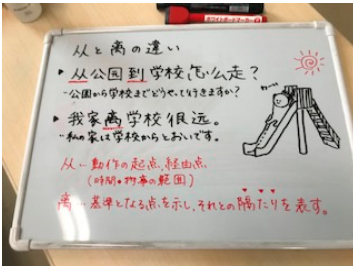 ホワイトボードマーカー
从と离の違い
▶ 从公园到学校怎么走？
"公園から学校までどうやって行きますか？
▶ 我家离学校很远。
"私の家は学校からとおいです。
从…動作の起点、経由点
(時間・物事の範囲)
离…基準となる点を示し、それとの隔たりを表す。